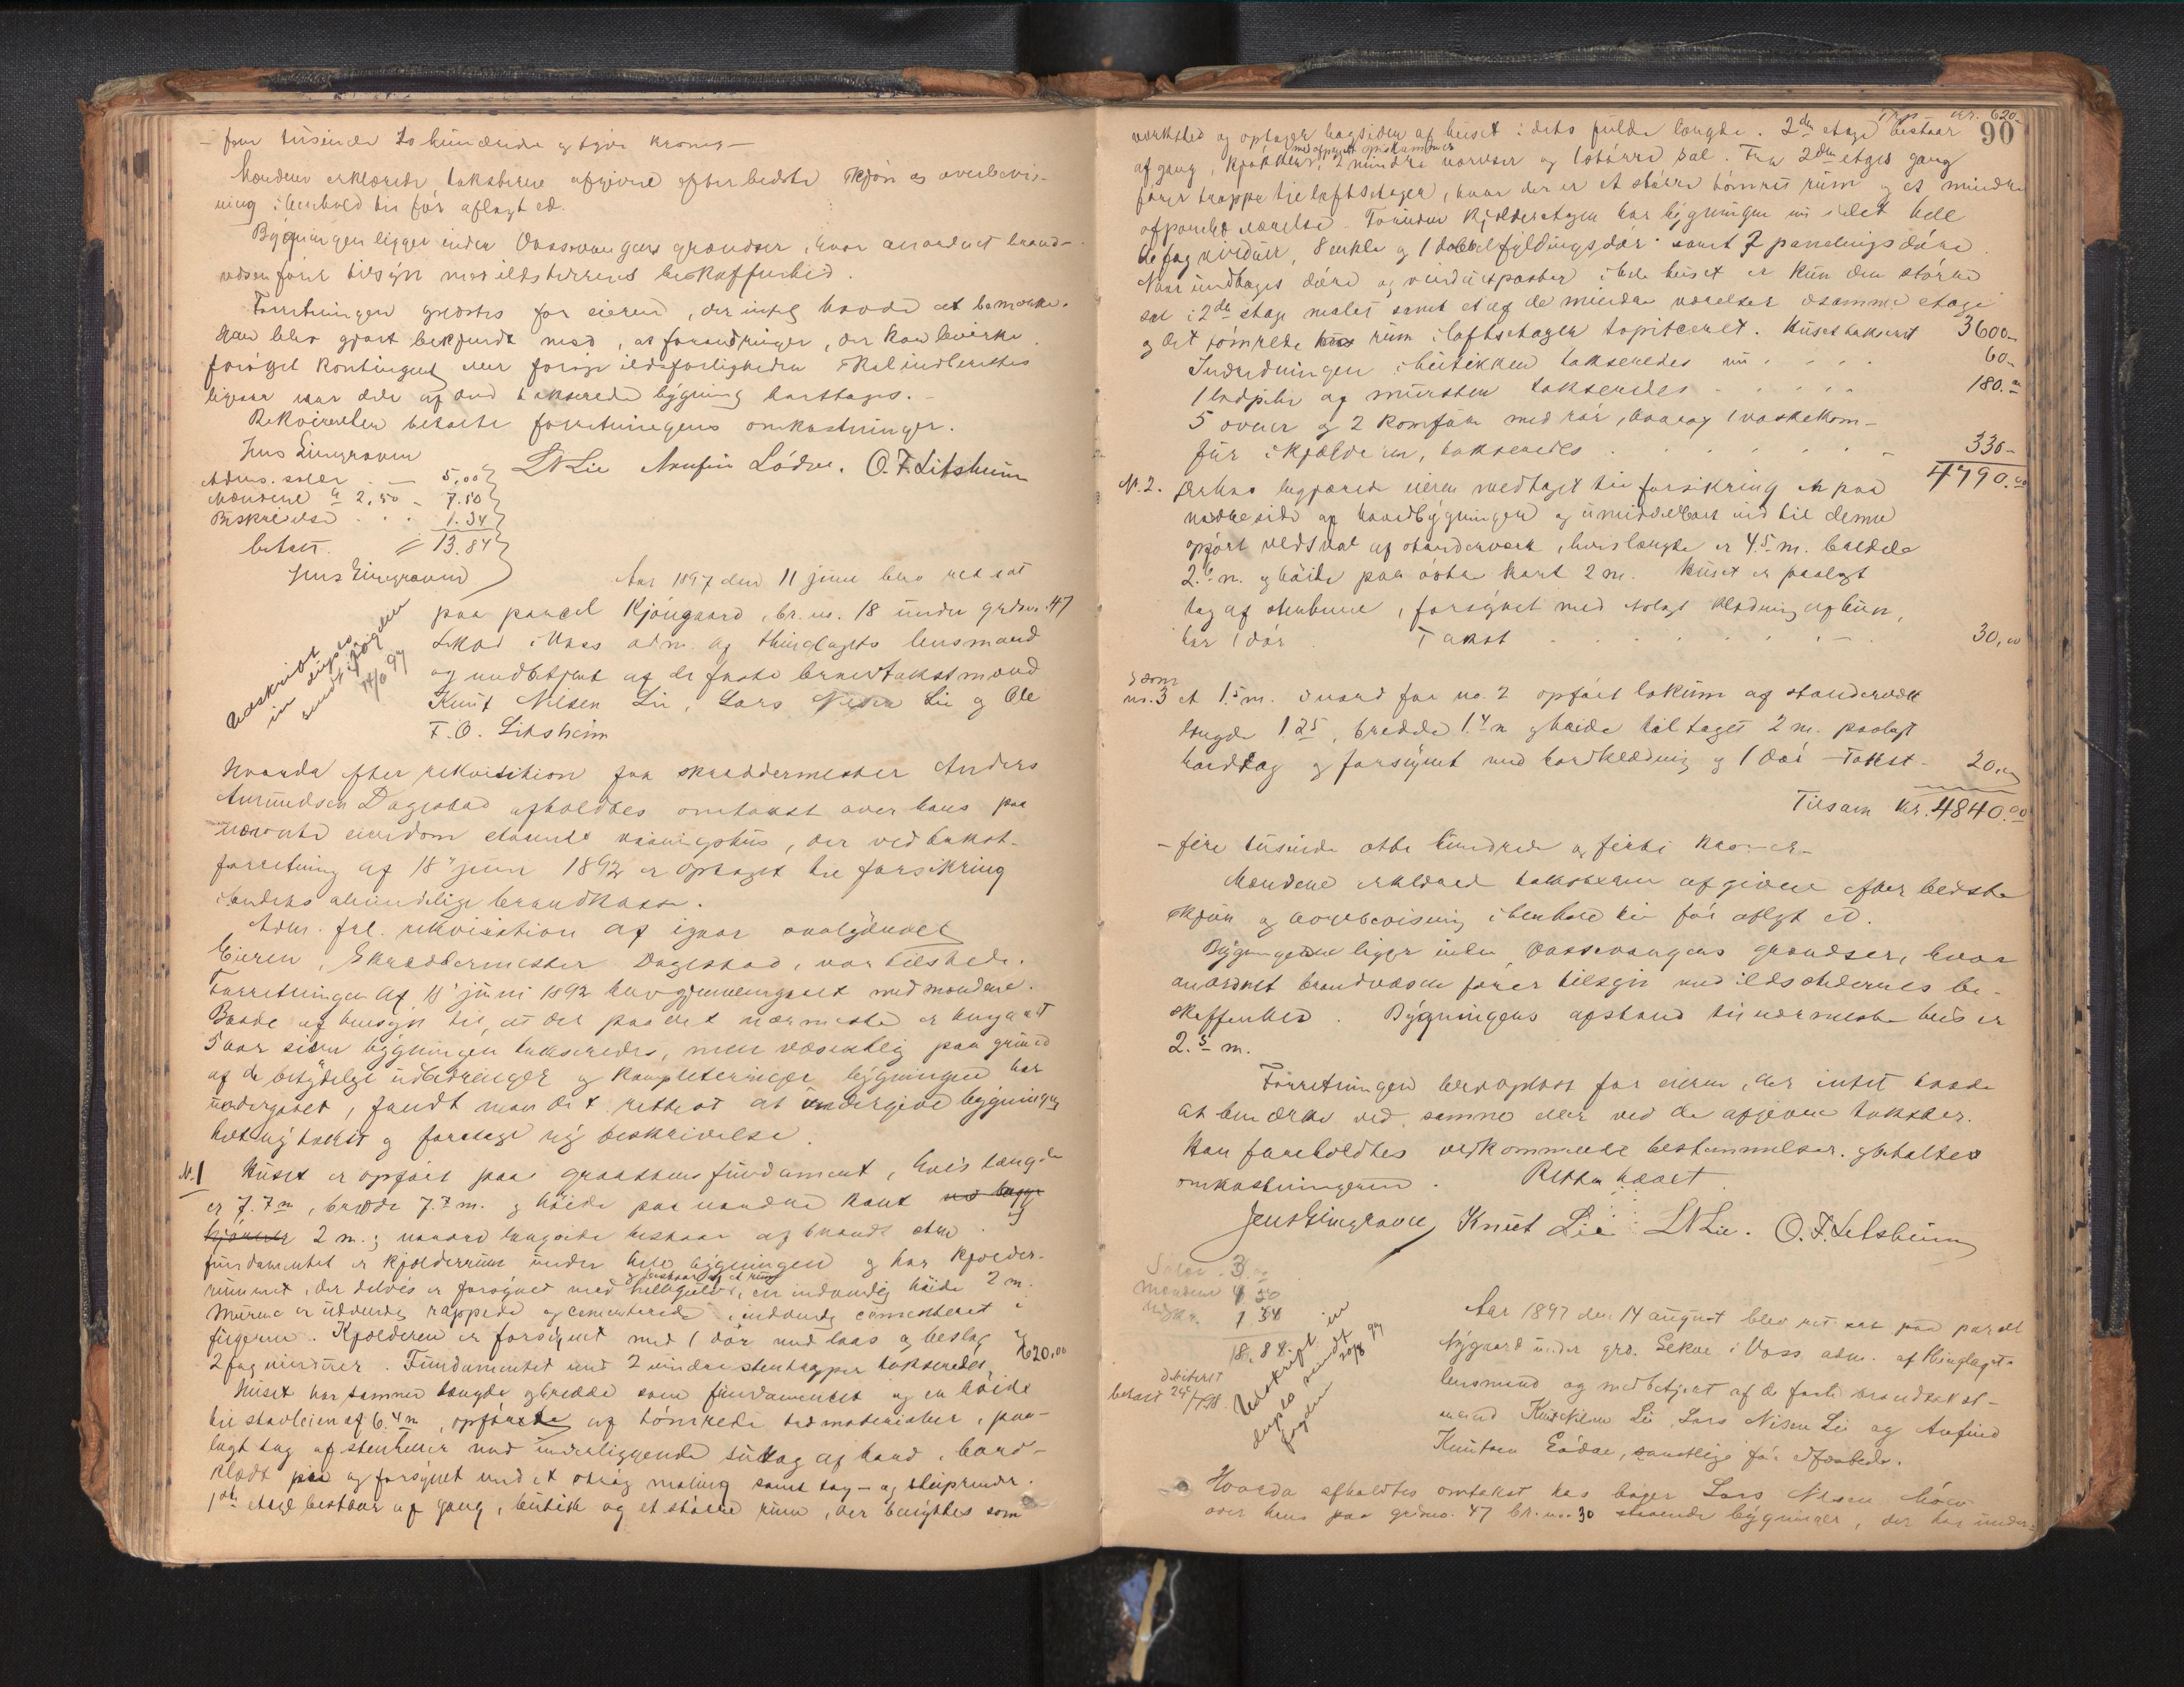 - fem tusinde to hundrede og tyve kroner -
Mændene erklærede taksterne afgivne efter bedste skjøn og overbevis-
ning i henhold til før aflagt ed.
Bygningen ligger inden Vossevangens grændser, hvor anordnet brand-
væsen fører tilsyn med ildstedernes beskaffenhed.
Forretningen oplæstes for eieren, der intet havde at bemærke.
Han blev gjort bekjendt med, at forandringer, der kan bevirke
forøget kontingent eller forøge ildsfarligheden skal indberettes
ligesaa naar dele af den takserede bygning borttages. -
Rekvirenten betalte forretningens omkostninger.
Jens Gjengraven
LNLie Arnfin Lödve. O. F. Litsheim
Adms. salær . - 5,00
Mændene à 2,50 - 7.50
Beskrivelse . . . 1.34
betalt. 13.84
Jens Gjengraven
Aar 1897 den 11 juni blev ret sat
paa parcel Kjöngaard, br. no. 18 under grdsno. 47
i Voss adm. af thinglagets lensmand
og medbetjent af de faste brandtakstmænd
Knut Nilsen Lie, Lars Nilsen Lie og Ole
F. O. Litsheim
Udskrift
in duplo
sendt fogden
14/6 97
Hvorda efter rekvisition fra skræddermester Anders
Amundsen Dagestad afholdtes omtakst over hans paa
nævnte eiendom staaende vaaningshus, der ved takst-
forretning af 18 juni 1892 er optaget til forsikring
i landets almindelige brandkasse.
Adm. frl. rekvisition af igaar
Eieren, Skræddermester Dagestad, var tilstede.
Forretningen af 18 juni 1892 blev gjennemgaaet med mændene.
Baade af hensyn til, at det paa det nærmeste er hengaaet
5 aar siden bygningen takseredes, men væsentlig paa grund
af de betydelige udbedringer og kompleteringer bygningen har
undergaaet, fandt man det rettest at undergive bygningen
helt ny takst og foretage ny beskrivelse.
No. 1 Huset er opført paa graastens fundament, hvis længde
er 7.7 m, bredde 7.7 m. og höide paa nordre kant ved begge
hjörner 2 m.; nordre langside bestaar af brændt sten.
I fundamentet er kjælderrum under hele bygningen og har kjælder-
og bestaar af et rum
rummet, der delvis er forsynet med hellegulv, en indvendig höide 2 m.
Murene er udvendig rappede og cementerede, indvendig cementeret i
fugerne. Kjælderen er forsynet med 1 dör med laas og beslag og
2 fag vinduer. Fundamentet med 2 mindre stentrapper takseredes 620,00
Huset har samme længde og bredde som fundamentet og en höide
til stavleien af 6.4 m, opförte af tömrede træmaterialer, paa-
lagt tag af stenheller med underliggende sutag af bord, bord-
klædt paa og forsynet med et strög maling samt tag- og steiprender.
1ste etage bestaar af gang, butik og et större rum, der benyttes som
90
Trp - kr. 620
værksted og optager bagsiden af huset i dets fulde længde. 2den etage bestaar
med afpanelt spiskammer
af gang, kjökken, 2 mindre værelser og 1 större sal. Fra 2den etages gang
fører trappe til loftsetagen, hvor der er et større tömret rum og et mindre
afpanelet værelse. Foruden kjælderetagen har bygningen nu i det hele
fag vinduer, 8 enkle og 1 dobbel fyldingsdør samt 7 panelingsdöre.
Naar undtages döre og vinduesposter i hele huset er kun den större
sal i 2den etage malet samt et af de mindre værelser i samme etage
og det tömrede rum i loftsetagen tapitseret. Huset takseret 3600-
Indredningen i butikken takseredes nu . . . . 60-
1 ildpibe af mursten takseredes . . . . . 180.-
5 ovne og 2 komfur med rör, hvoraf 1 vaskekom-
fur i kjælderen, takseredes . . . . . . 330-
4790.00
No. 2. begjærede eieren medtaget til forsikring et paa
nordre side af hovedbygningen og umiddelbart ind til denne
opført vedskal af standerværk, hvis længde er 4.5 m. bredde
2.6 m. og höide paa östre kant 2 m. Huset er paalagt
tag af stenheller, forsynet med klædning af bun,
har 1 dør Takst . . . . . . . 30,00
samt
no. 3 et 1.5 m. i nord for no. 2 opført lokum af standerværk
længde 1.25, bredde 1.4 m og höide til taget 2 m. paalagt
bordtag og forsynet med bordklædning og 1 dør - Takst - 20,00
Tilsam kr. 4840.00
- fire tusinde otte hundrede og firti kroner -
Mændene erklæred taksterne afgivne efter bedste
skjön og overbevisning i henhold til før aflagt ed.
Bygningerne ligger inden Vossevangens grændser, hvor
anordnet brandvæsen fører tilsyn med ildstedernes be-
skaffenhed. Bygningens afstand til nærmeste hus er
2.5 m.
Forretningen blev oplæst for eieren, der intet havde
at bemærke ved samme eller ved de afgivne takster.
Han foreholdtes vedkommende bestemmelser og betaltes
omkostningerne. Retten hævet.
Jens Gjengraven, Knut Lie LNLie. O. F. Litsheim
Salær . 3.00
Mændene 7 50
Udskr. 1 34
18. 84.
debiteret
betalt 24/ 98.
Udskrift in
duplo sendt
fogden 20/8 97
Aar 1897 den 14 august blev ret sat paa parcel
Nygaard under grd. Lekve i Voss adm. af thinglagets
lensmand og medbetjent af de faste brandtakst-
mænd Knut Nilsen Lie, Lars Nilsen Lie og Anfind
Knutsen Lödve, samtlige før edfæstede.
Hvorda afholdtes omtakst hos bager Lars Nilsen
over hans paa grdno. 47 br. no. 30 staaende bygninger, der har under-